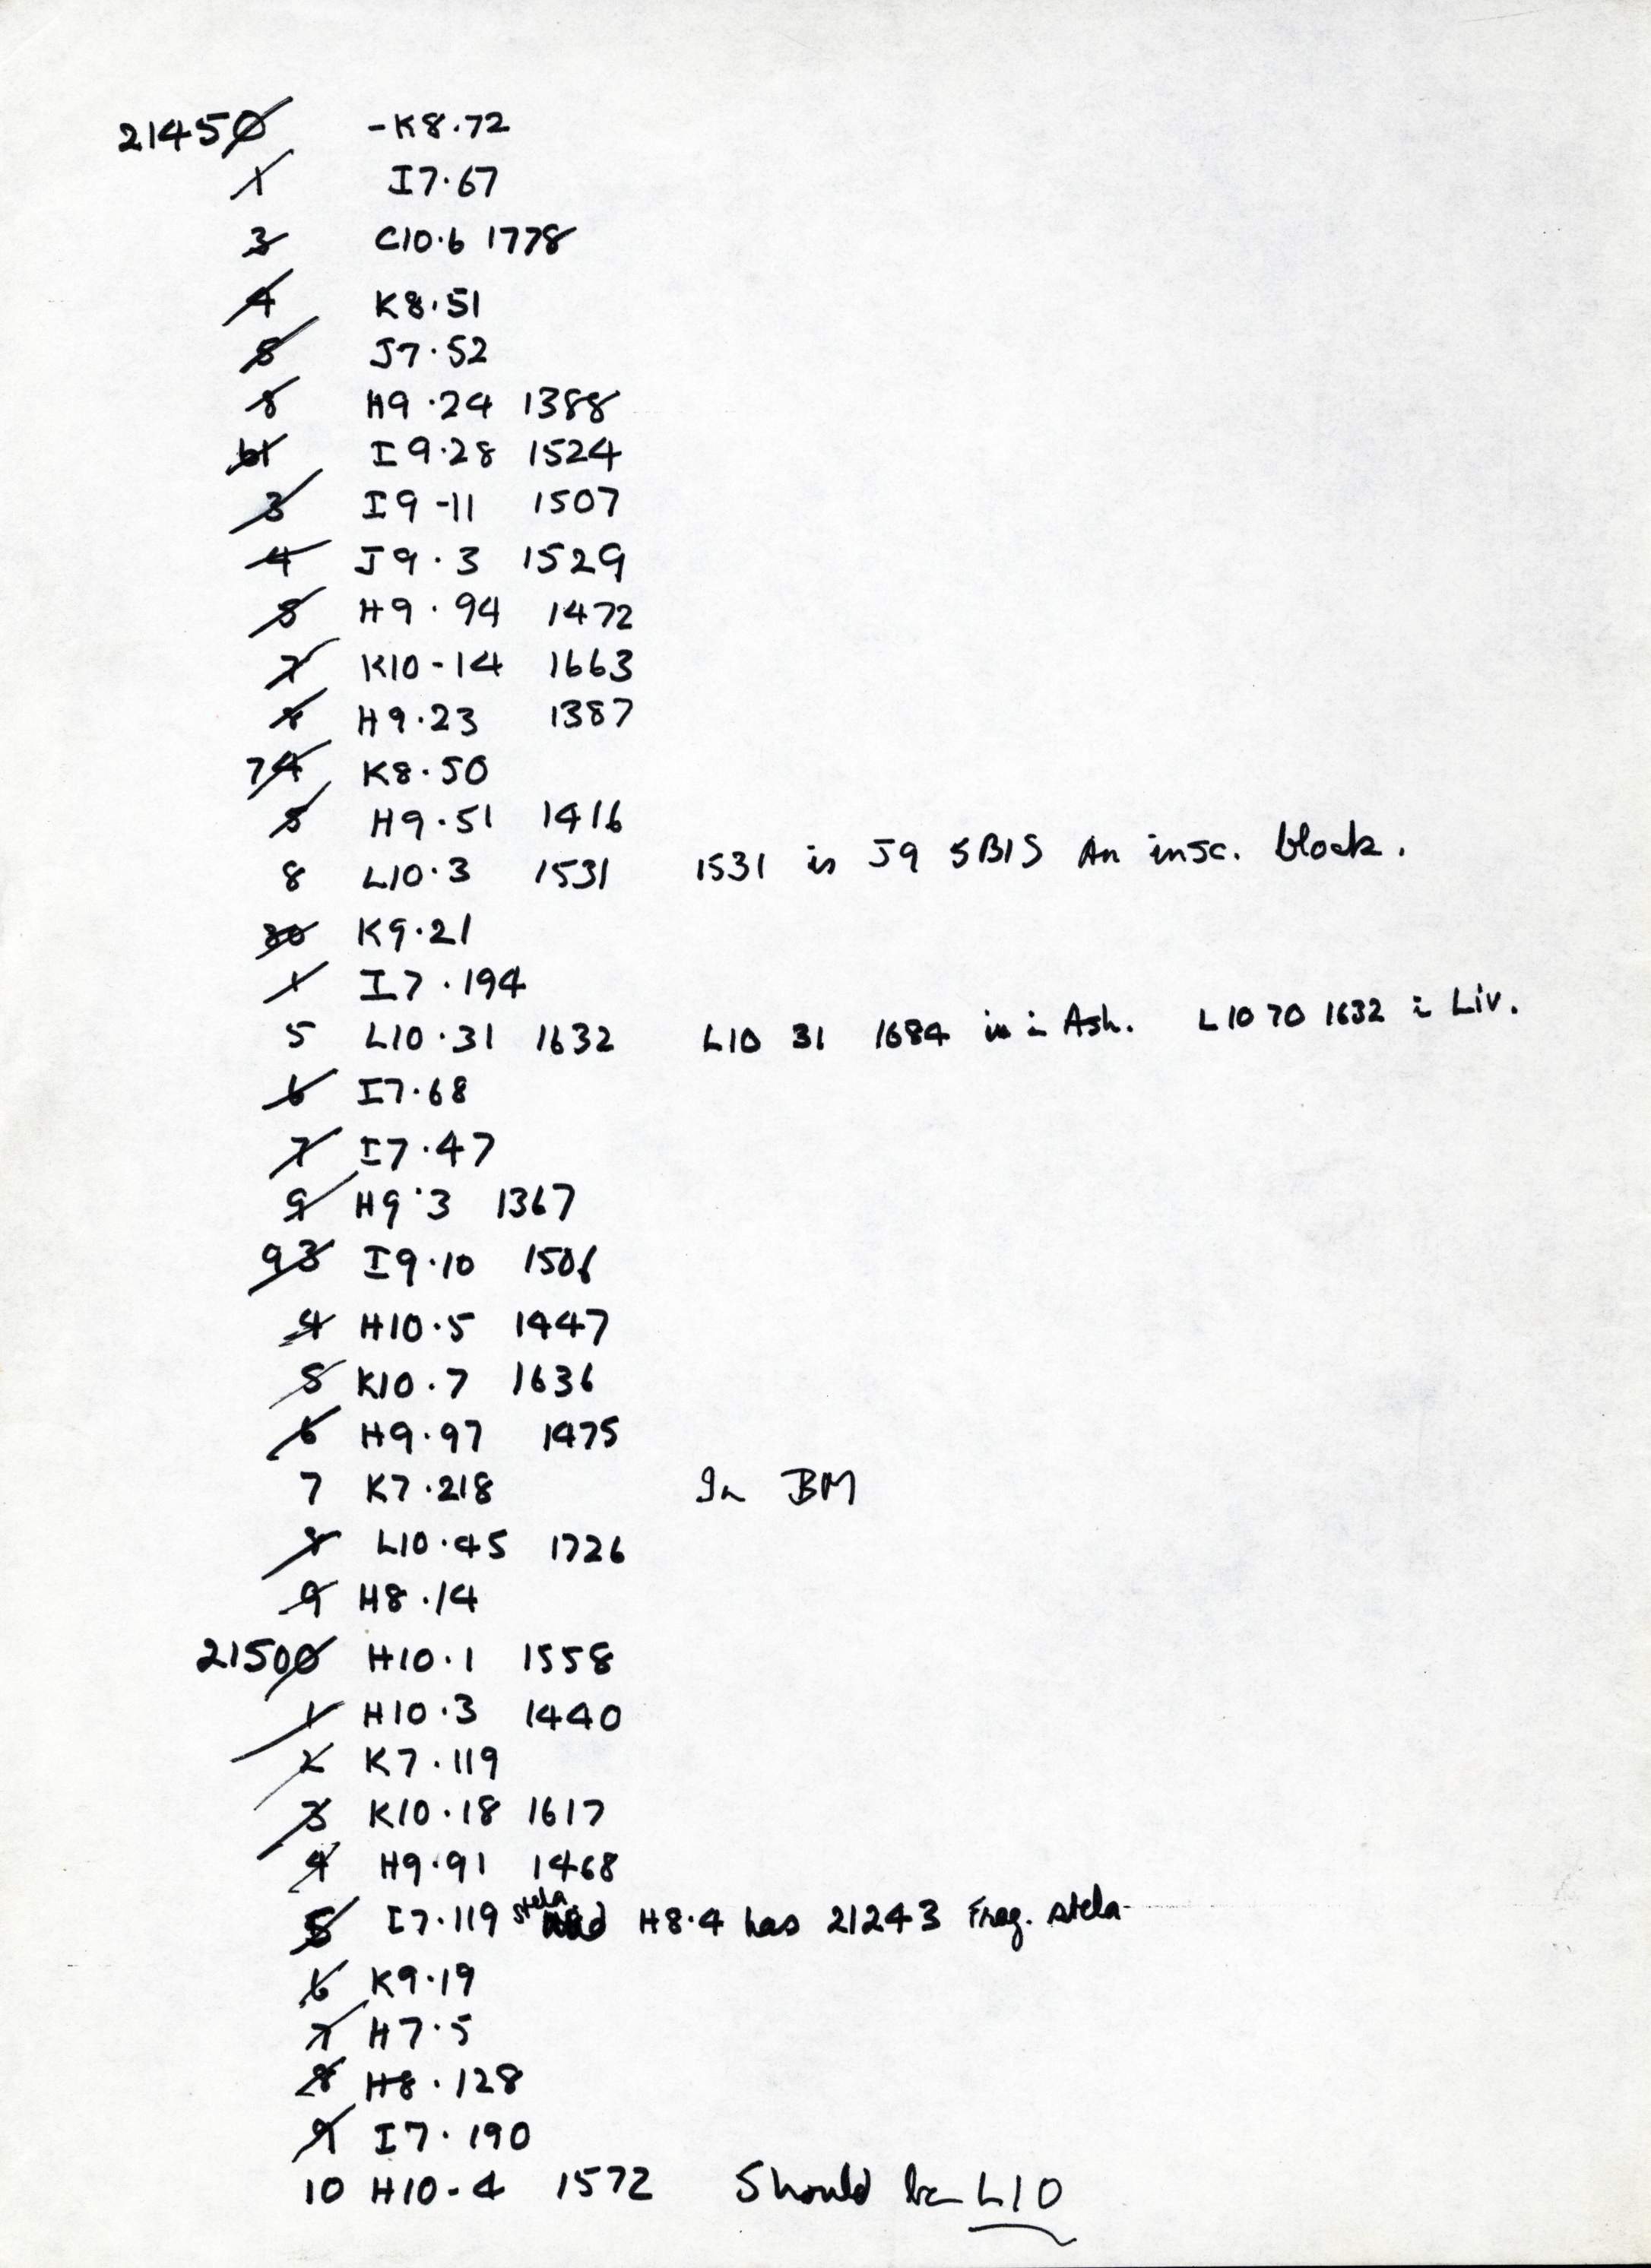 21450 -K8.72
1 I7.67
3 C10.6 1778
4 K8.51
5 J7.52
8 H9.24 1388
61 I9.28 1524
3 I9-11 1507
4 J9.3 1529
5 H9.94 1472
7 K10-14 1663
8 H9.23 1387
74 K8.50
5 H9.51 1416
8 L10.3 1531 1531 is J9 5BIS An insc. block.
80 K9.21
1 I7.194
5 L10.31 1632 L10 31 1684 is in Ash. L10 70 1632 i Liv.
6 I7.68
7 I7.47
9 H9.3 1367
93 I9.10 1506
4 H10.5 1447
5 K10.7 1636
6 H9.97 1475
7 K7.218 In BM
8 L10.45 1726
9 H8.14
21500 H10.1 1558
1 H10.3 1440
2 K7.119
3 K10.18 1617
4 H9.91 1468
5 I7.119 stela and H8.4 has 21243 Frag. stela
6 K9.19
7 H7.5
8 H8.128
9 I7.190
10 H10-4 1572 Should be L10